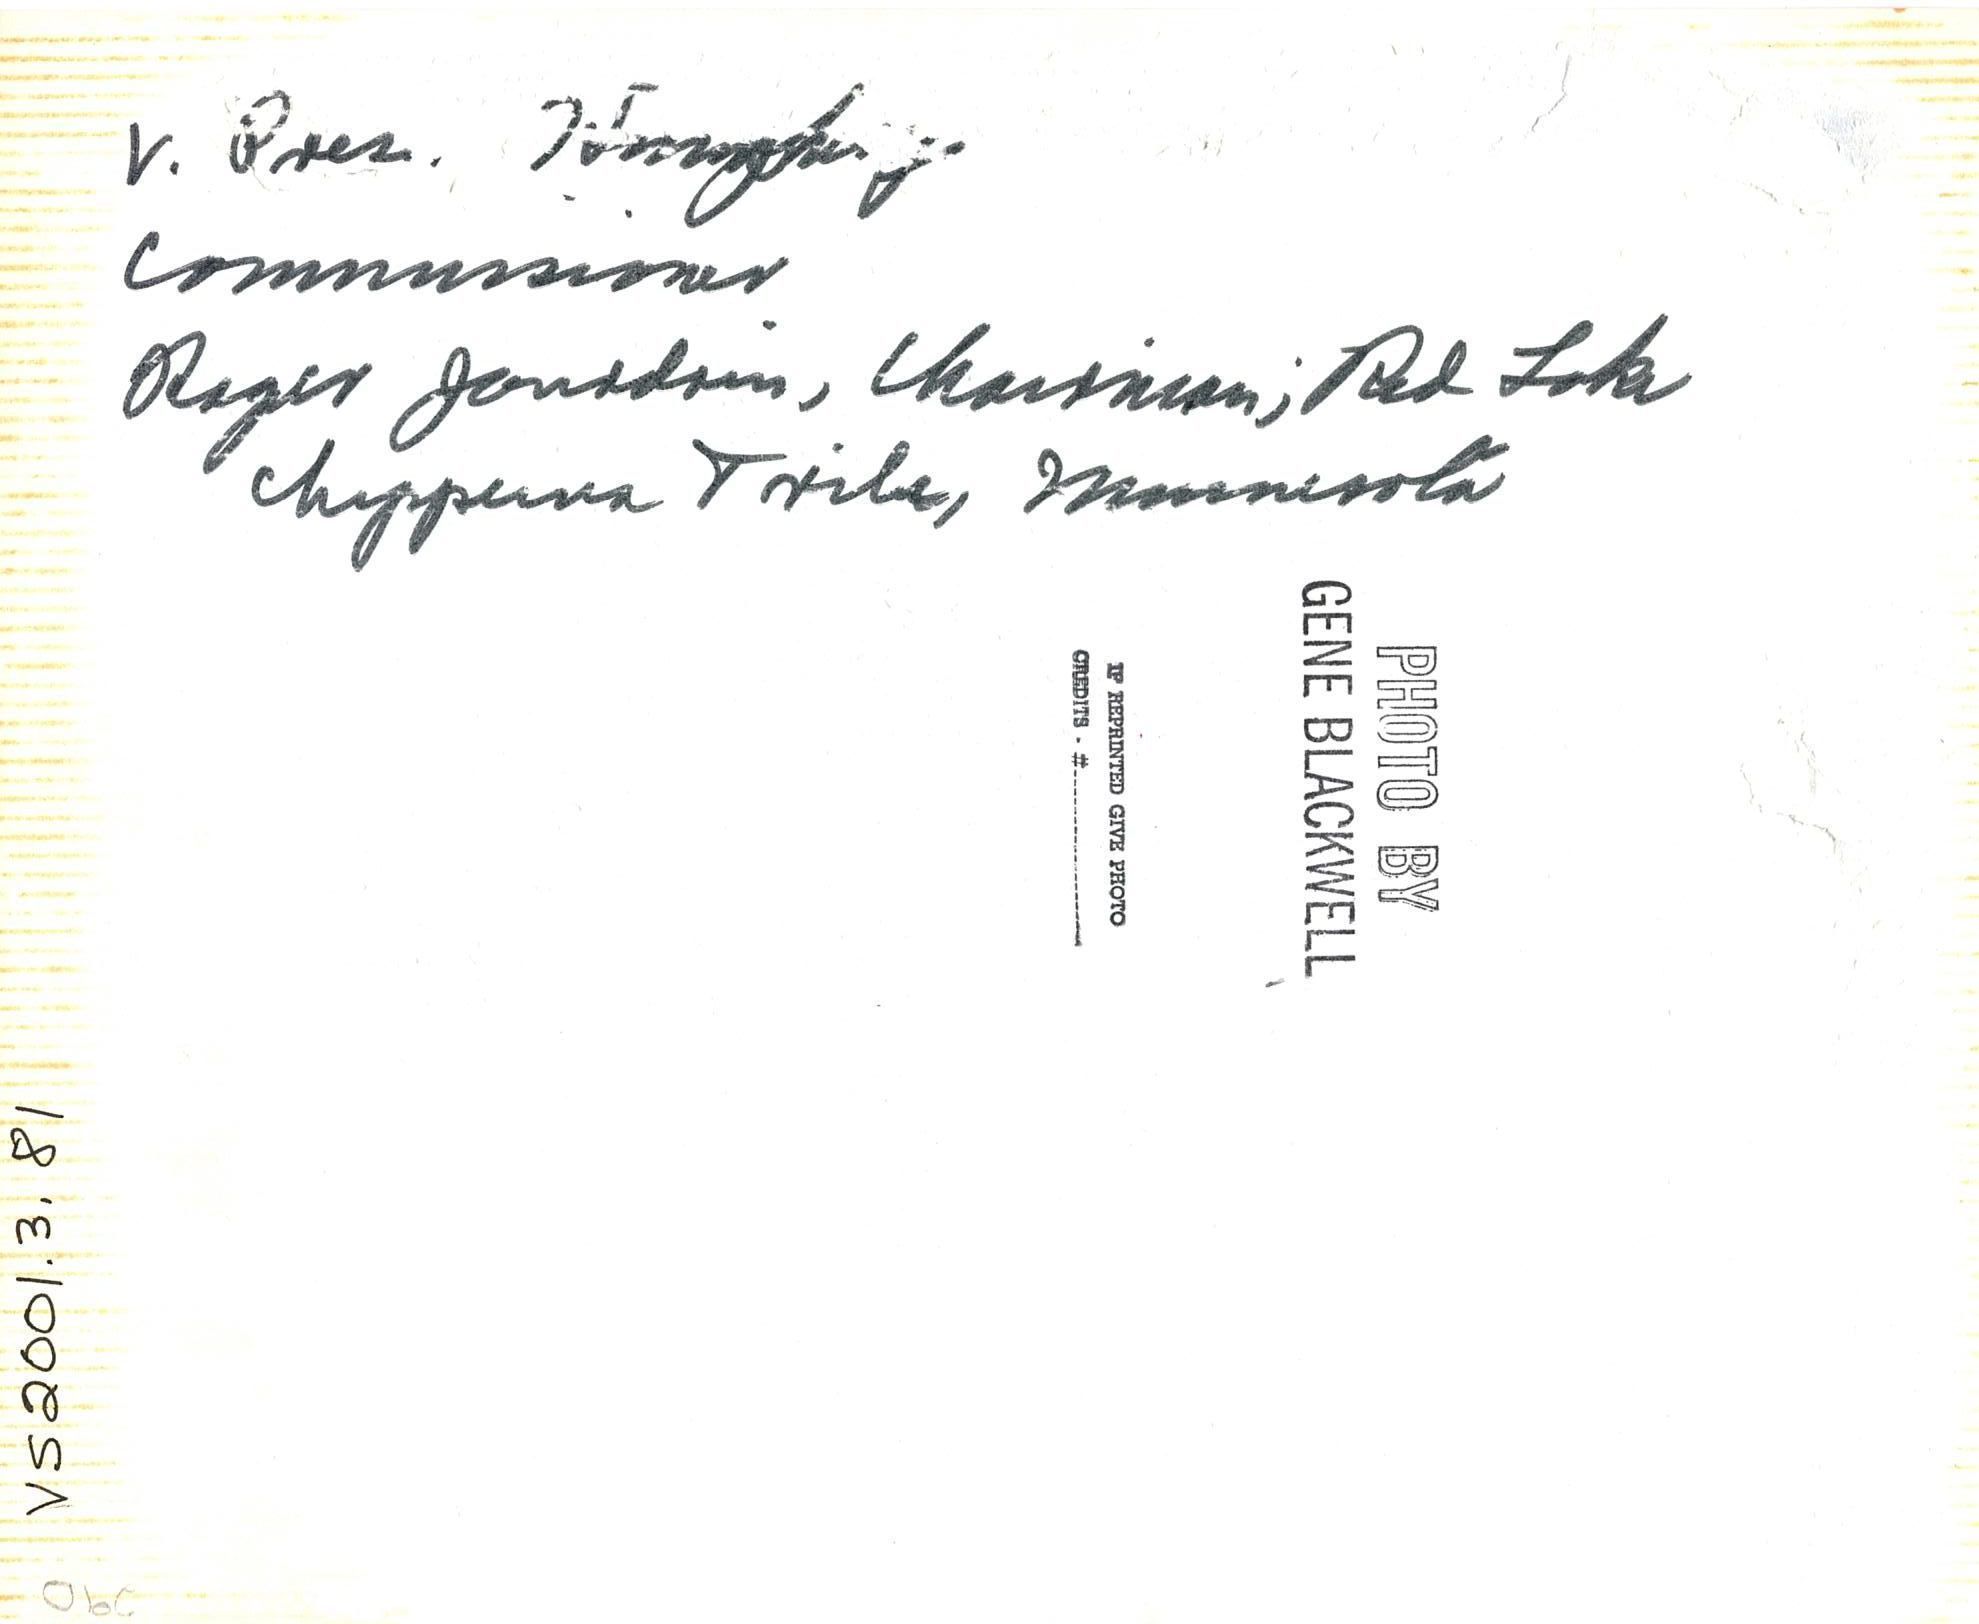 V. Pres. Humphrey
Commissioner
Roger Jourdain, Chairman, Red Lake
Chippewa Tribe, Minnesota
PHOTO BY
GENE BLACKWELL
IF REPRINTED GIVE PHOTO
CREDITS - #
VS2001.3.81